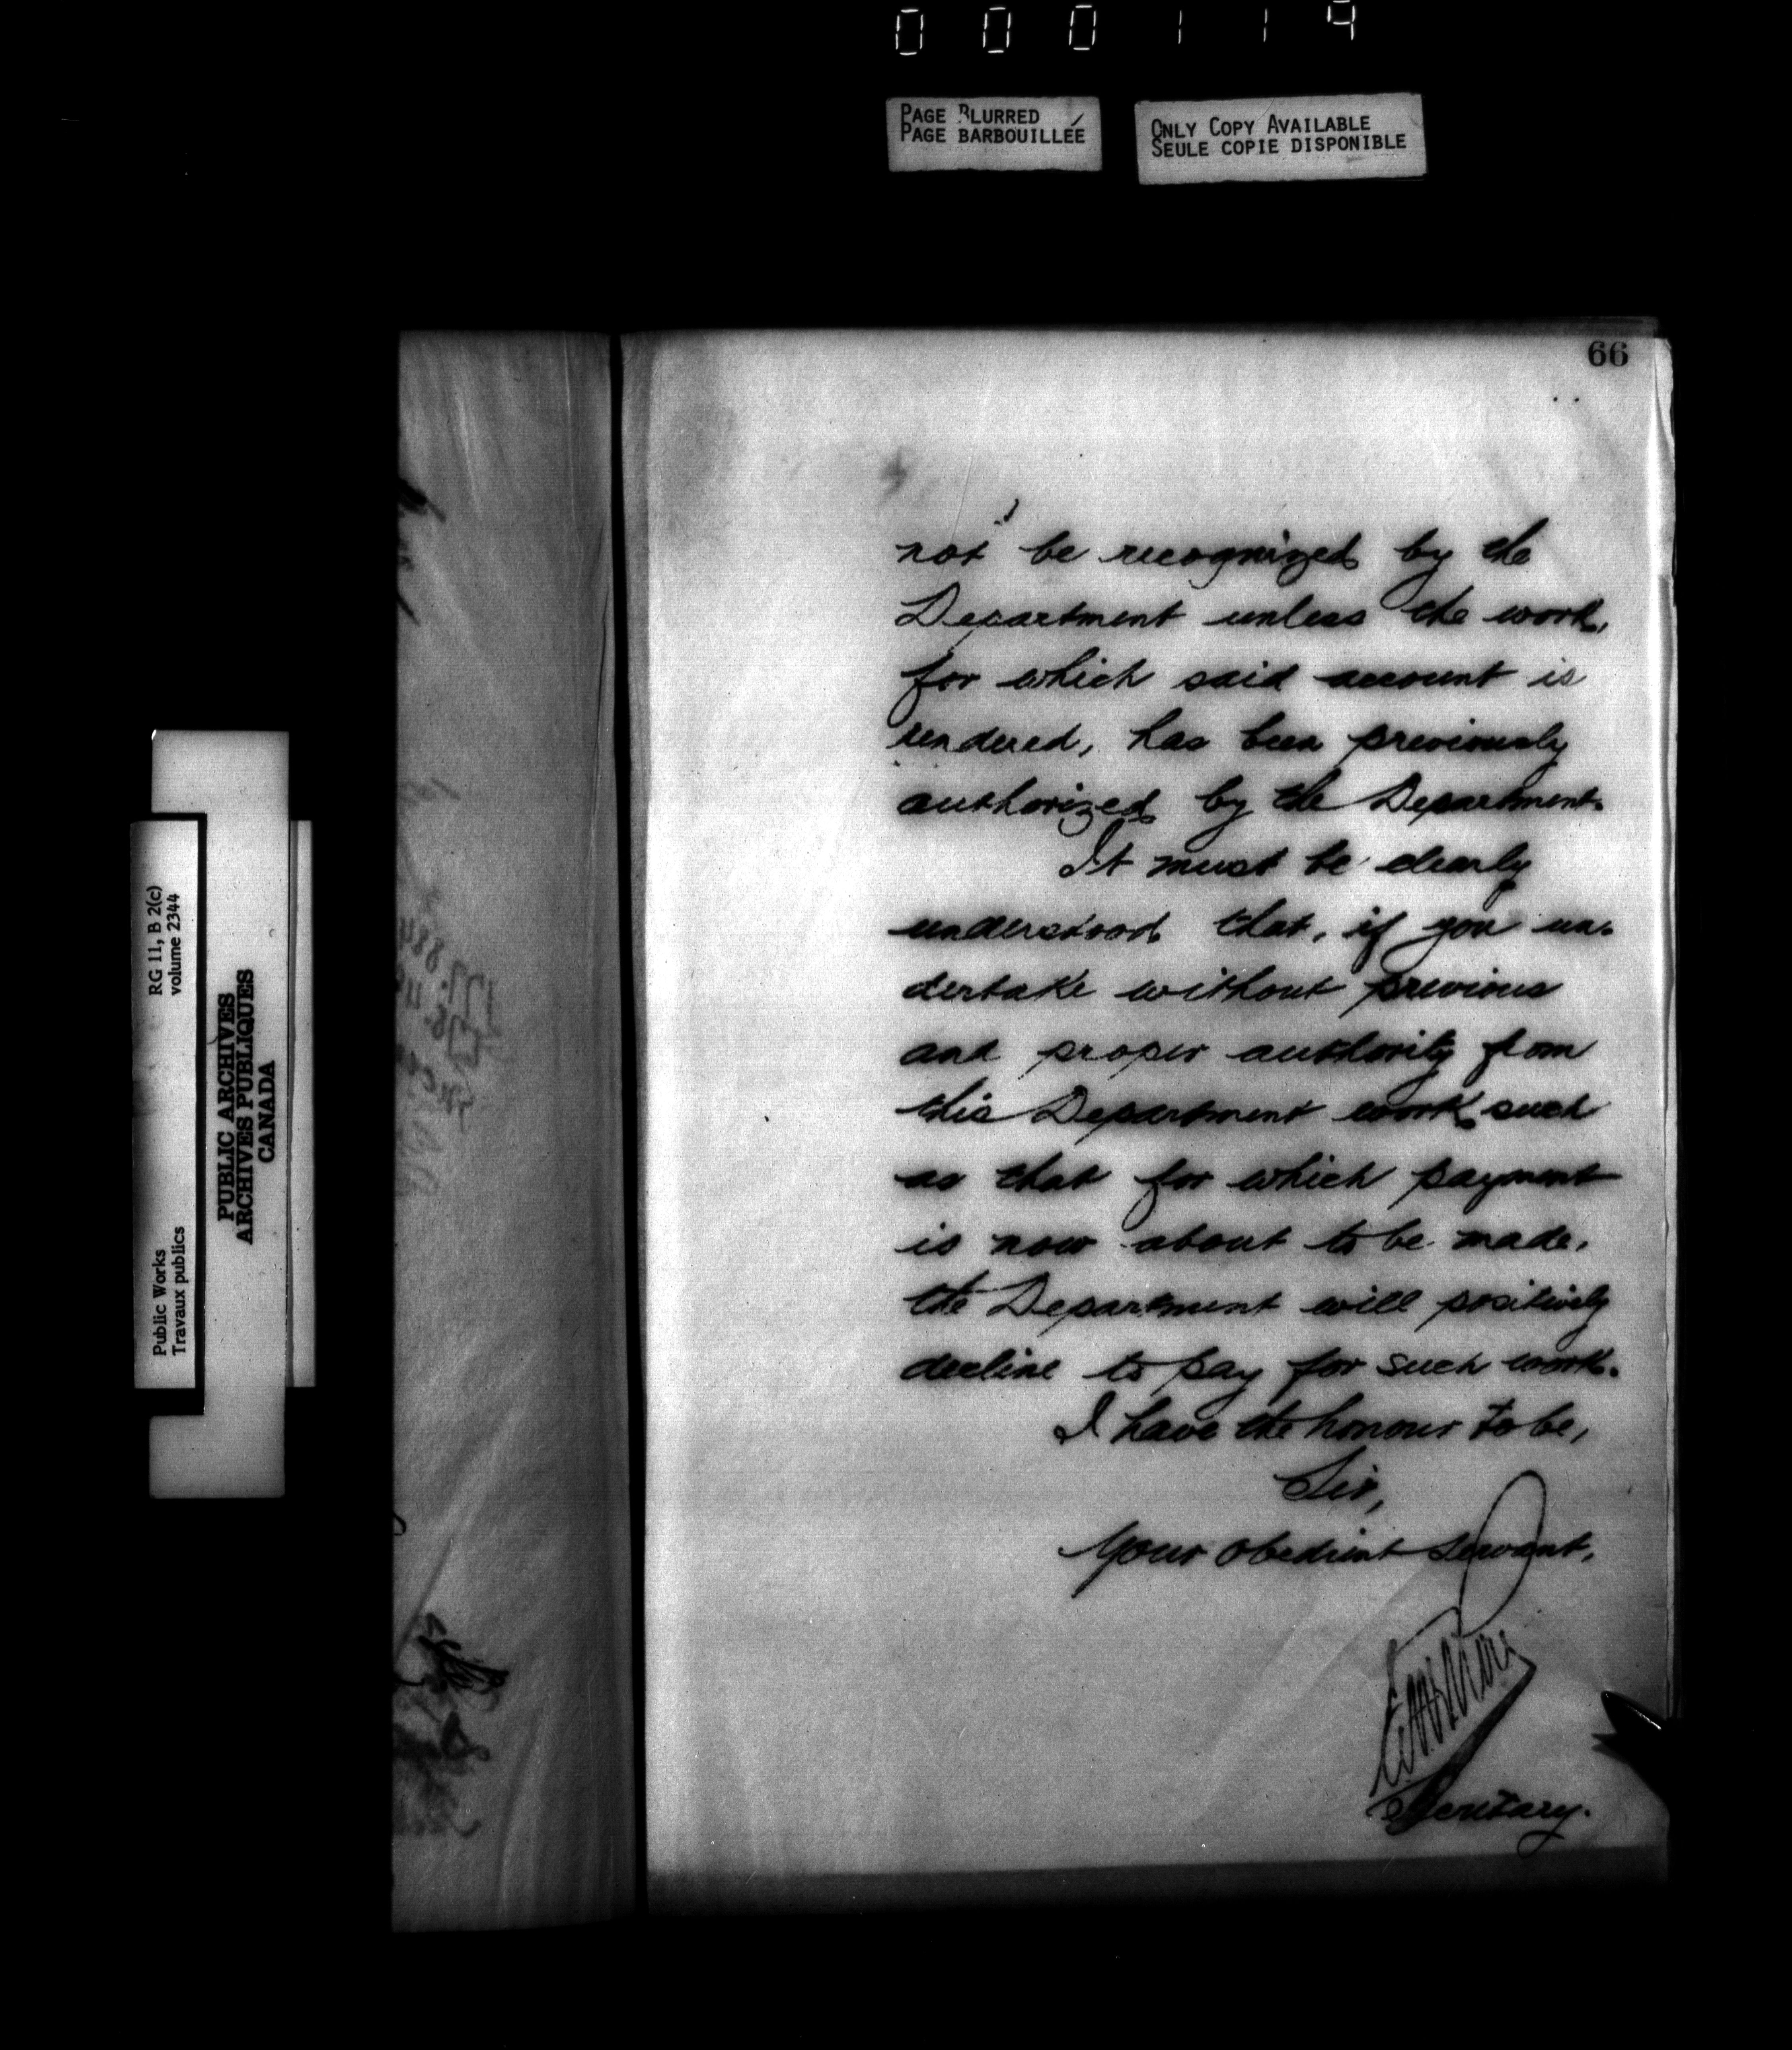 000119
PAGE BLURRED
PAGE BARBOUILLÉE
ONLY COPY AVAILABLE
SEULE COPIE DISPONIBLE
66
not be recognized by the
Department unless the work,
for which said account is
rendered, has been previously
authorized by the Department.
It must be clearly
understood that, if you un-
dertake without previous
and proper authority from
this Department work such
as that for which payment
is now about to be made,
the Department will positively
decline to pay for such work.
I have the honour to be,
Sir,
Your obedient servant,
Secretary.
RG 11, B 2(c)
volume 2344
Public Works
Travaux publics
PUBLIC ARCHIVES
ARCHIVES PUBLIQUES
CANADA